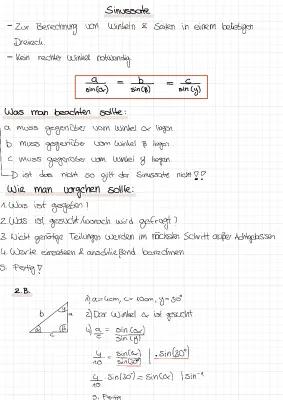 Sinussatz
- Zur Berechnung von Winkeln & Seiten in einem beliebigen
Dreieck.
- Kein rechter Winkel notwendig
a/sin(α) = b/sin(β) = c/sin(γ)
Was man beachten sollte:
a muss gegenüber vom Winkel α liegen
b muss gegenüber vom Winkel β liegen
c muss gegenüber vom Winkel γ liegen
Ist das nicht so gilt der Sinussatz nicht!!
Wie man vorgehen sollte:
1. Was ist gegeben?
2. Was ist gesucht/wonach wird gefragt?
3. Nicht benötigte Teilungen werden im nächsten Schritt außer Acht gelassen
4. Werte einsetzen & anschließend berechnen
5. Fertig!
z.B.
1) a=4cm, c=10cm, γ=30°
2) Der Winkel α ist gesucht
b
a
c
4) a/c = sin(α)/sin(γ)
4/10 = sin(α)/sin(30°) | · sin(30°)
4/10 · sin(30°) = sin(α) | sin⁻¹
5. Fertig